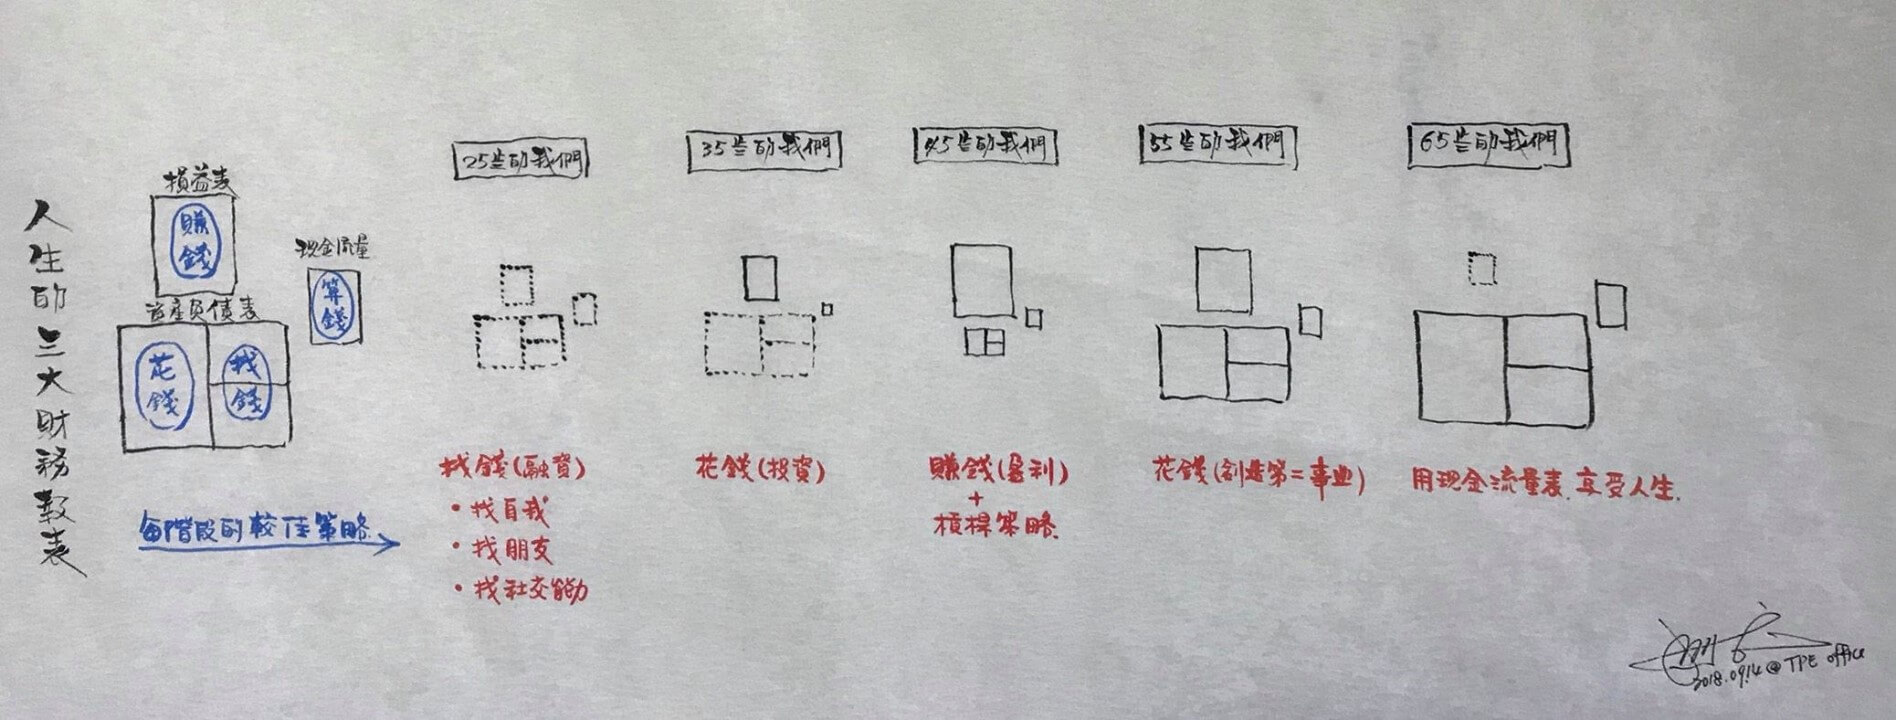 人生的三大財務報表
損益表
賺錢
現金流量
算錢
資產負債表
花錢
找錢
每階段的較佳策略
25岁的我們
35岁的我們
45岁的我們
55岁的我們
65岁的我們
找錢(融資)
• 找自我
• 找朋友
• 找社交能力
花錢(投資)
賺錢(盈利)
+
槓桿策略.
花錢(創造第二事业)
用现金流量表.享受人生.
2018.09.14 @ TPE office